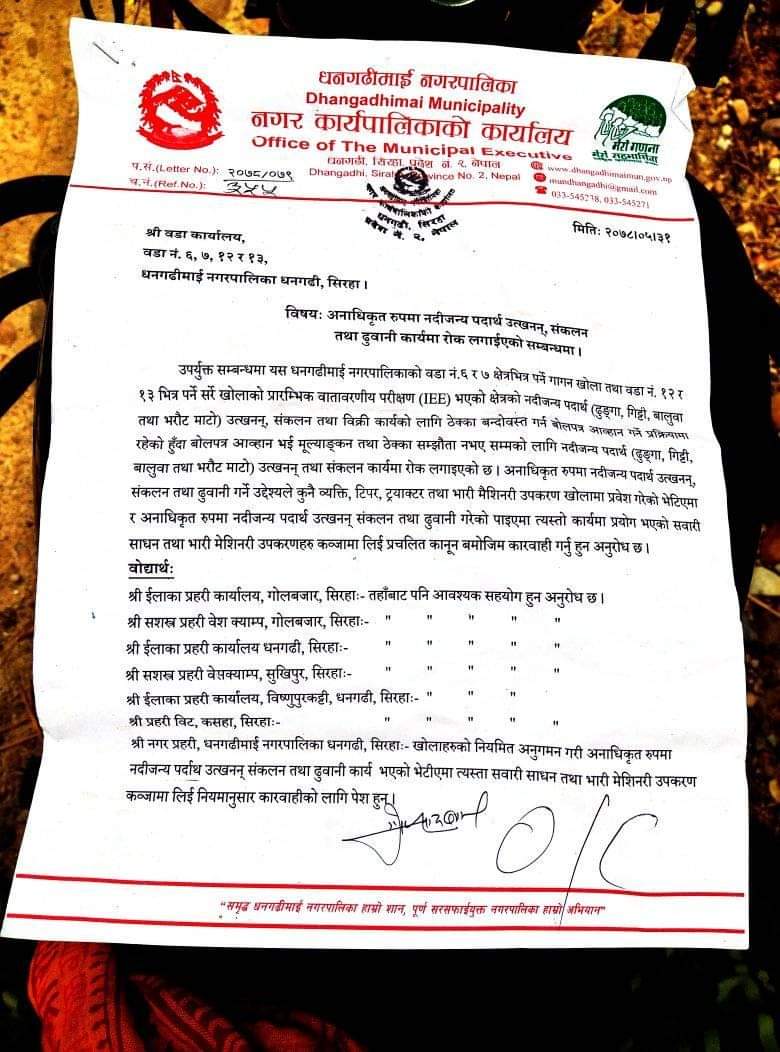 धनगढीमाई नगरपालिका
Dhangadhimai Municipality
नगर कार्यपालिकाको कार्यालय
Office of The Municipal Executive
धनगढी, सिरहा, प्रदेश नं. २, नेपाल
Dhangadhi, Siraha, Province No. 2, Nepal
मेरो गणना
मेरो सहभागिता
www.dhangadhimaimun.gov.np
mundhangadhi@gmail.com
033-545218, 033-545271
प.सं.(Letter No.): २०७८/०७९
च.नं.(Ref.No.): ३४५
धनगढी, सिरहा
प्रदेश नं. २, नेपाल
मितिः २०७८।०५।३१
श्री वडा कार्यालय,
वडा नं. ६, ७, १२ र १३,
धनगढीमाई नगरपालिका धनगढी, सिरहा ।
विषयः अनाधिकृत रुपमा नदीजन्य पदार्थ उत्खनन्, संकलन
तथा ढुवानी कार्यमा रोक लगाईएको सम्बन्धमा ।
उपर्युक्त सम्बन्धमा यस धनगढीमाई नगरपालिकाको वडा नं.६ र ७ क्षेत्रभित्र पर्ने गागन खोला तथा वडा नं. १२ र
१३ भित्र पर्ने सर्रे खोलाको प्रारम्भिक वातावरणीय परीक्षण (IEE) भएको क्षेत्रको नदीजन्य पदार्थ (ढुङ्गा, गिट्टी, बालुवा
तथा भरौट माटो) उत्खनन्, संकलन तथा विक्री कार्यको लागि ठेक्का बन्दोवस्त गर्न बोलपत्र आव्हान गर्ने प्रक्रियामा
रहेको हुँदा बोलपत्र आव्हान भई मूल्याङ्कन तथा ठेक्का सम्झौता नभए सम्मको लागि नदीजन्य पदार्थ (ढुङ्गा, गिट्टी,
बालुवा तथा भरौट माटो) उत्खनन् तथा संकलन कार्यमा रोक लगाइएको छ । अनाधिकृत रुपमा नदीजन्य पदार्थ उत्खनन्,
संकलन तथा ढुवानी गर्ने उद्देश्यले कुनै व्यक्ति, टिपर, ट्रयाक्टर तथा भारी मैशिनरी उपकरण खोलामा प्रवेश गरेको भेटिएमा
र अनाधिकृत रुपमा नदीजन्य पदार्थ उत्खनन् संकलन तथा ढुवानी गरेको पाइएमा त्यस्तो कार्यमा प्रयोग भएको सवारी
साधन तथा भारी मेशिनरी उपकरणहरु कव्जामा लिई प्रचलित कानून बमोजिम कारवाही गर्नु हुन अनुरोध छ ।
वोद्यार्थः
श्री ईलाका प्रहरी कार्यालय, गोलबजार, सिरहाः- तहाँबाट पनि आवश्यक सहयोग हुन अनुरोध छ ।
श्री सशस्त्र प्रहरी वेश क्याम्प, गोलबजार, सिरहाः- " " " " "
श्री ईलाका प्रहरी कार्यालय धनगढी, सिरहाः- " " " " "
श्री सशस्त्र प्रहरी वेषक्याम्प, सुखिपुर, सिरहाः- " " " "
श्री ईलाका प्रहरी कार्यालय, विष्णुपुरकट्टी, धनगढी, सिरहाः- " " " "
श्री प्रहरी विट, कसहा, सिरहाः- " " " " "
श्री नगर प्रहरी, धनगढीमाई नगरपालिका धनगढी, सिरहाः- खोलाहरुको नियमित अनुगमन गरी अनाधिकृत रुपमा
नदीजन्य पर्दाथ उत्खनन् संकलन तथा ढुवानी कार्य भएको भेटीएमा त्यस्ता सवारी साधन तथा भारी मेशिनरी उपकरण
कव्जामा लिई नियमानुसार कारवाहीको लागि पेश हुन् ।
O/C
"समृद्ध धनगढीमाई नगरपालिका हाम्रो शान, पूर्ण सरसफाईयुक्त नगरपालिका हाम्रो अभियान"